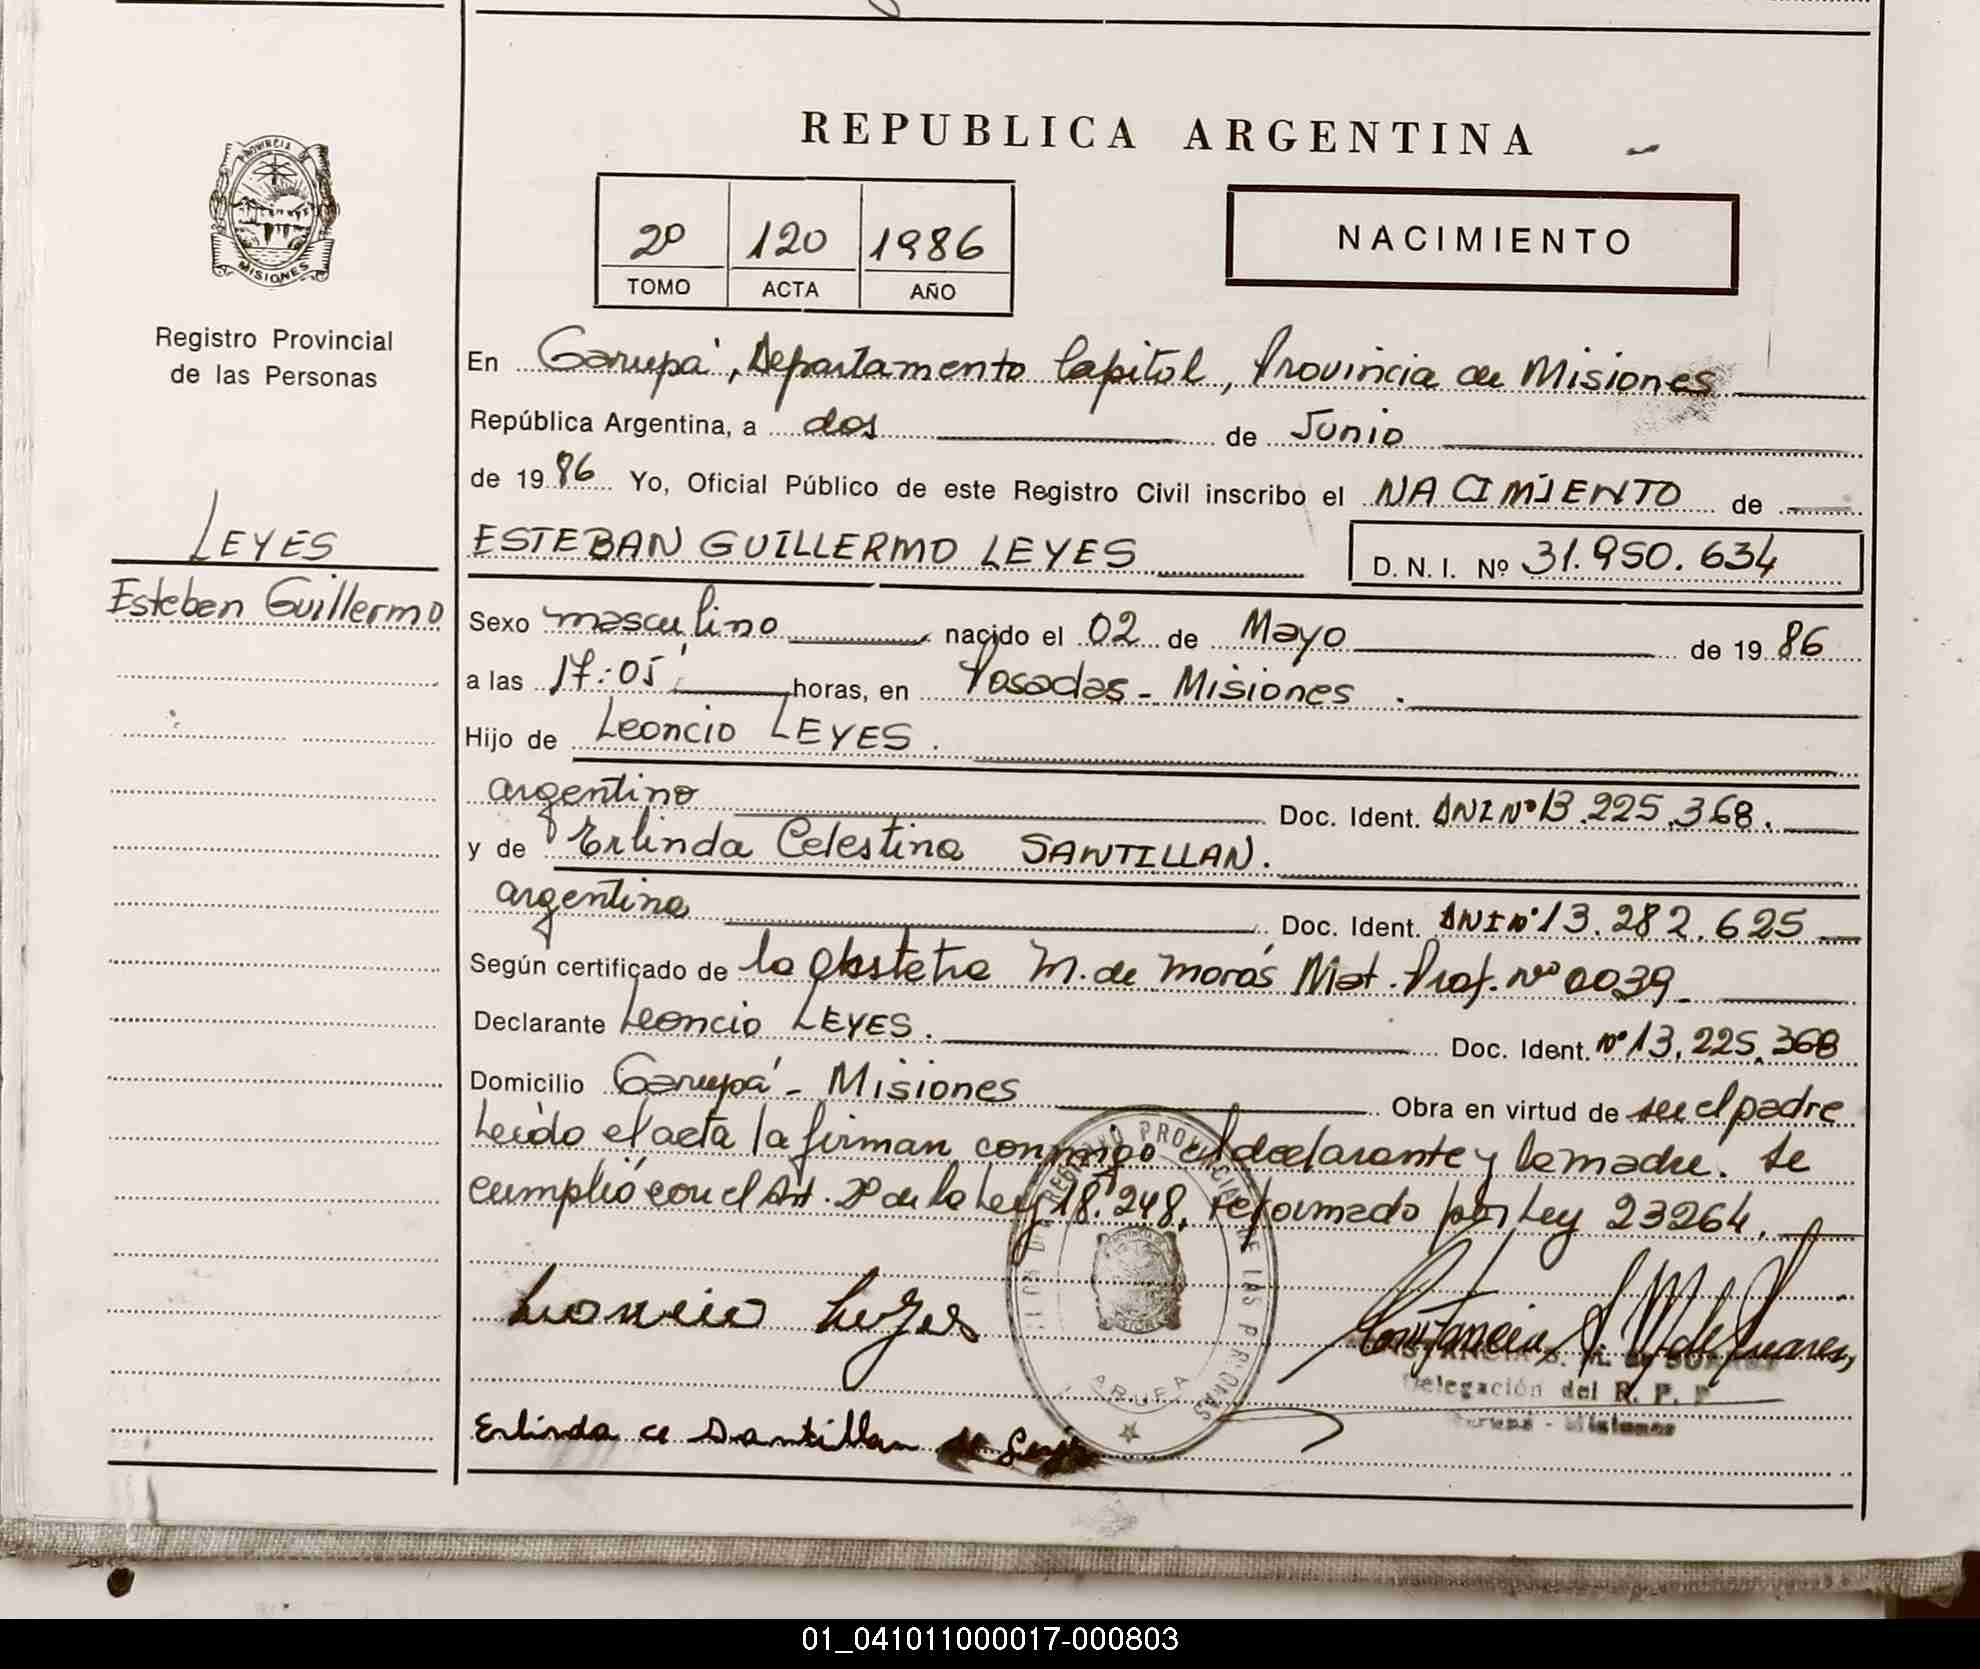 REPUBLICA ARGENTINA
PROVINCIA DE
MISIONES
Registro Provincial
de las Personas
2º 120 1986
TOMO ACTA AÑO
NACIMIENTO
En Garupá, Departamento Capital, Provincia de Misiones
República Argentina, a dos de Junio
de 1986 Yo, Oficial Público de este Registro Civil inscribo el NACIMIENTO de
LEYES
Esteban Guillermo
ESTEBAN GUILLERMO LEYES D. N. I. Nº 31.950.634
Sexo masculino nacido el 02 de Mayo de 1986
a las 17:05 horas, en Posadas - Misiones.
Hijo de Leoncio LEYES.
argentino Doc. Ident. DNI Nº 13.225.368.
y de Erlinda Celestina SANTILLAN.
argentina Doc. Ident. DNI Nº 13.282.625
Según certificado de la obstetra M. de Morás Mat. Prof. Nº 0039
Declarante Leoncio LEYES. Doc. Ident. Nº 13.225.368
Domicilio Garupá - Misiones Obra en virtud de ser el padre
Leído el acta la firman conmigo el declarante y la madre. Se
cumplió con el Art. 2º de la Ley 18.248, reformado por Ley 23264.
Leoncio Leyes
Constancia S. M. de Suarez
Delegación del R. P. P
Garupá - Misiones
REGISTRO PROVINCIAL DE LAS PERSONAS
Erlinda C Santillan de Leyes
01_041011000017-000803